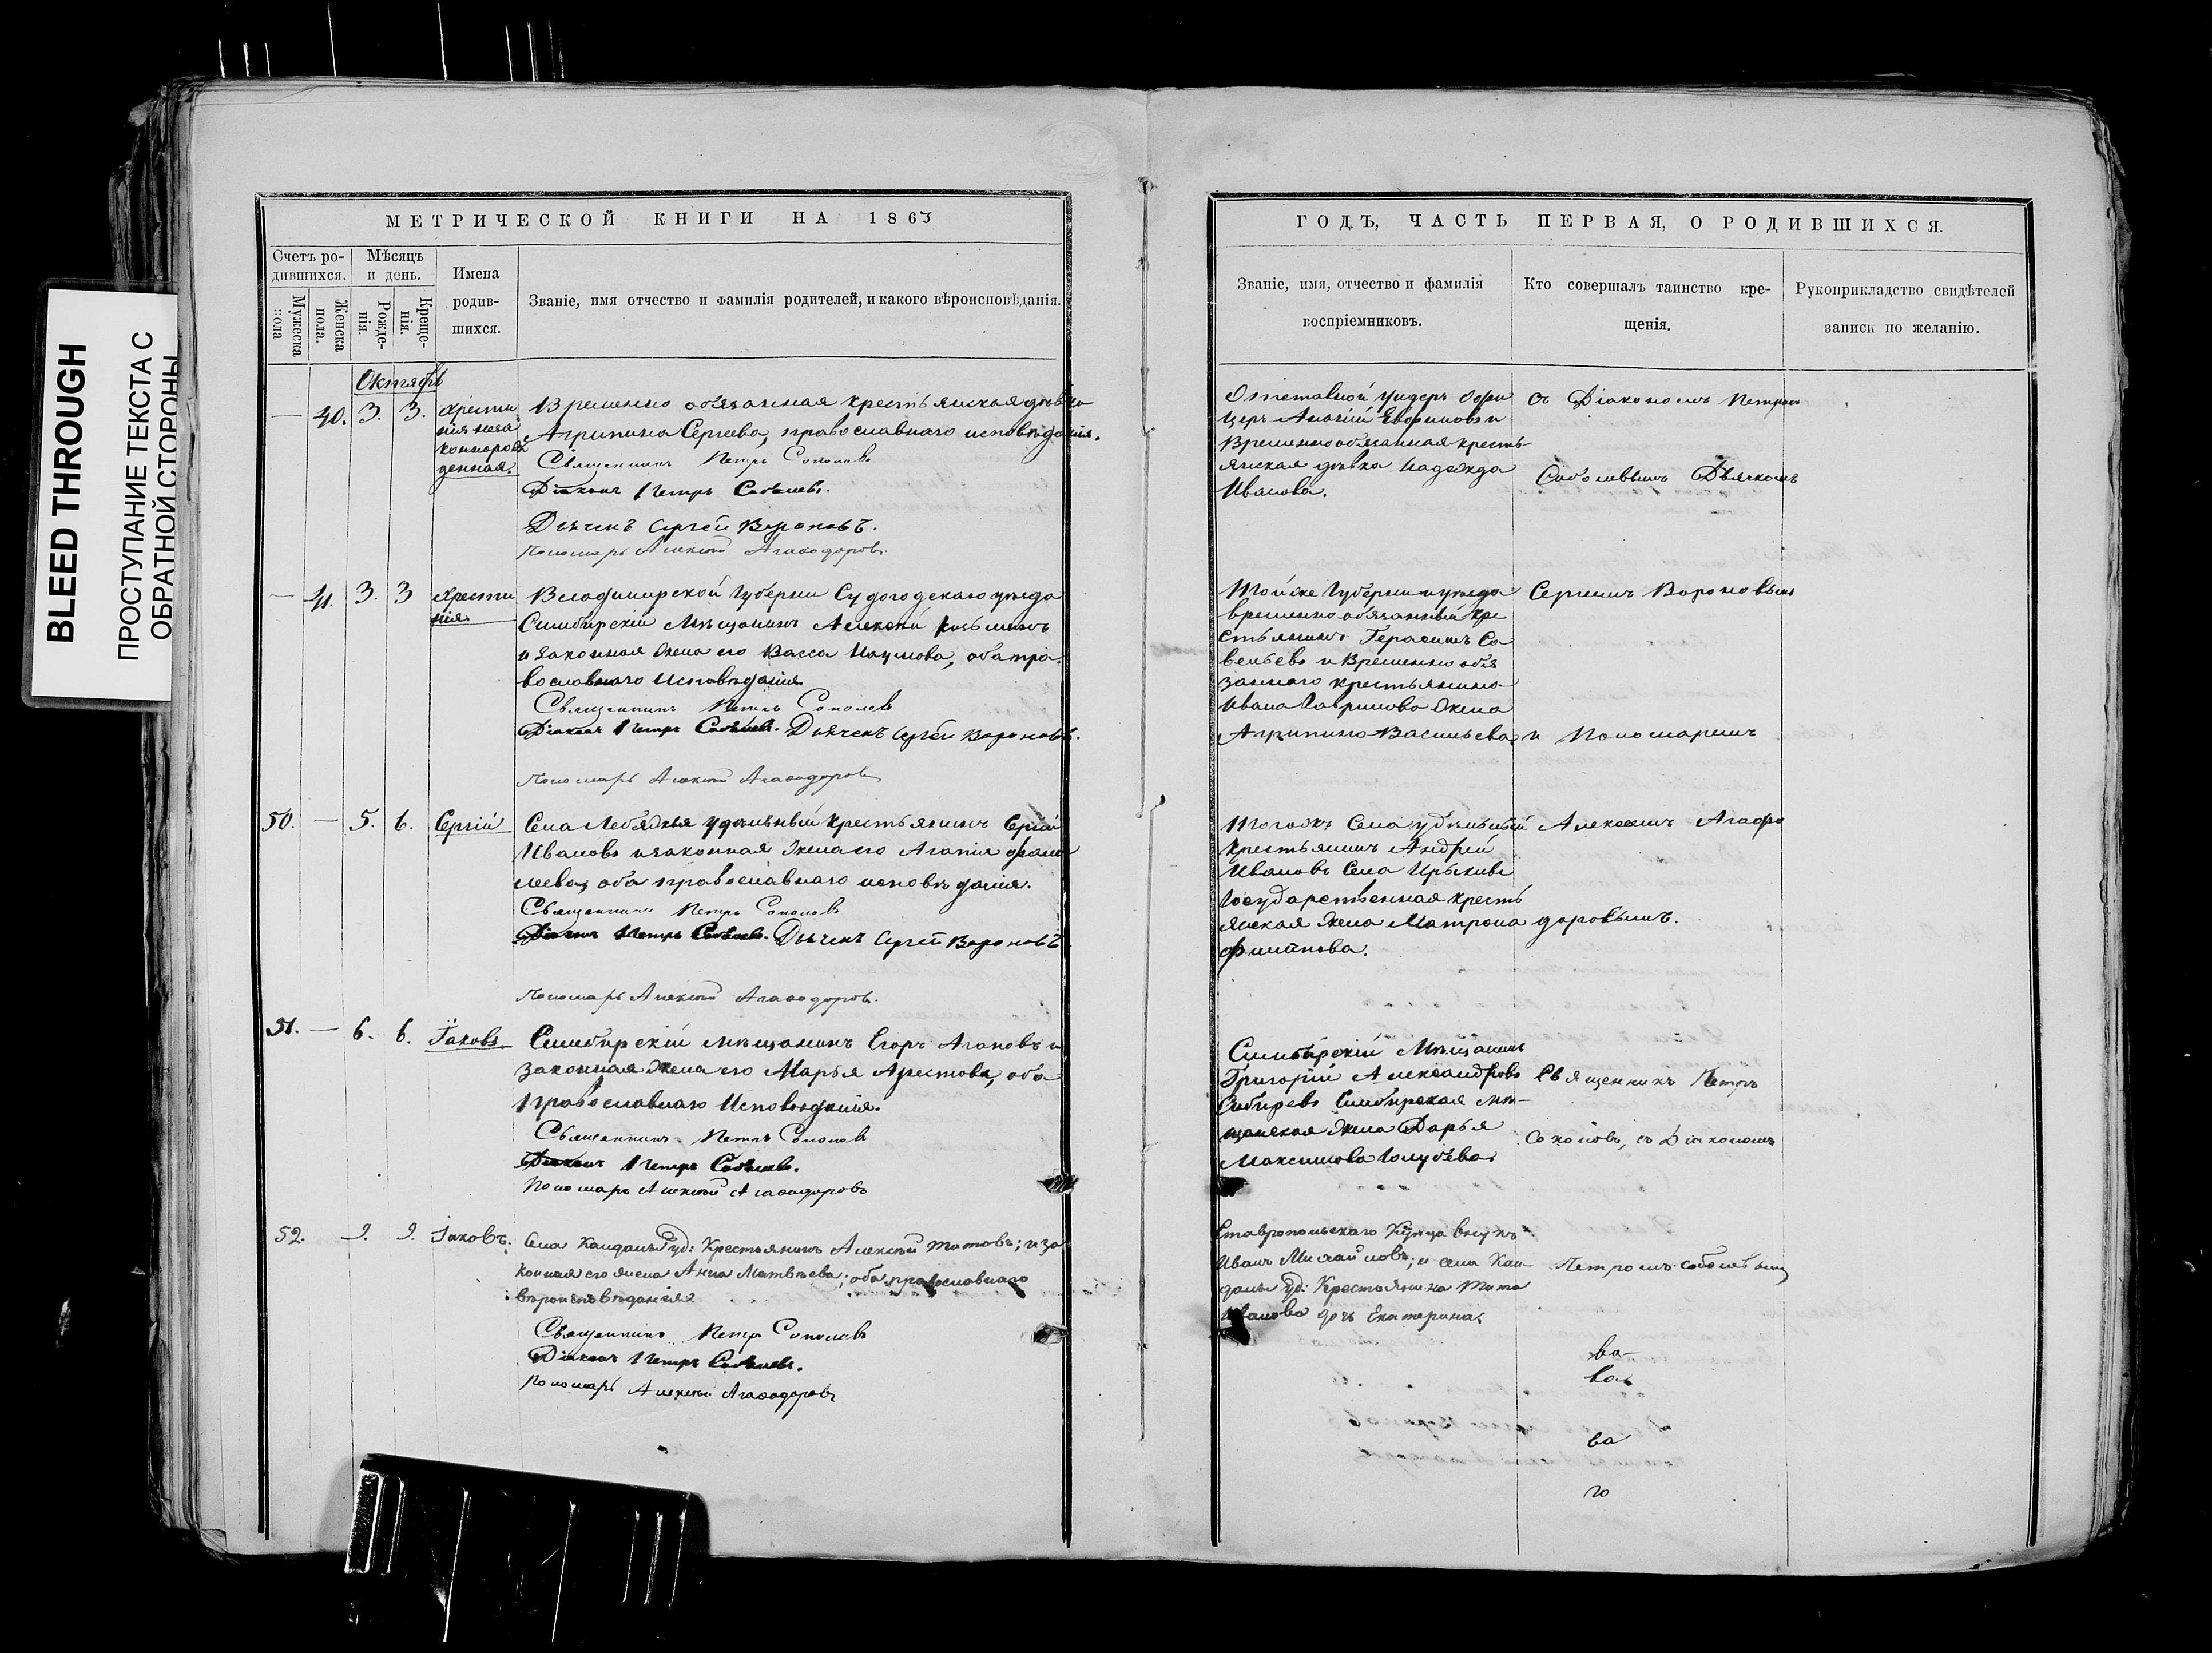 BLEED THROUGH
ПРОСТУПАНИЕ ТЕКСТА С
ОБРАТНОЙ СТОРОНЫ
МЕТРИЧЕСКОЙ КНИГИ НА 1863
Счетъ ро-
дившихся.
Мужеска
пола
Женска
пола.
Мѣсяцъ
и день.
Рожде-
нія.
Креще-
нія.
Имена
родив-
шихся.
Званіе, имя отчество и фамилія родителей, и какого вѣроисповѣданія.
Октябрь
— 40. 3. 3.
Христи
нія неза
коннорож
денная.
Временно обязанная крестьянская дѣвка
Агрипина Сергеева, православнаго исповѣданія.
Священникъ Петръ Соколовъ
Діаконъ Петръ Соболевъ.
Дьячекъ Сергей Вороновъ.
Пономарь Алексей Агаѳодоровъ.
— 41. 3. 3
Христи
нія.
Владимирской Губерніи Судогодскаго уѣзда
Симбирскій Мѣщанинъ Алексей Козьминъ
и законная жена его Васса Наумова, оба пра-
вославнаго Исповѣданія.
Священникъ Петръ Соколовъ
Діаконъ Петръ Соболевъ. Дьячекъ Сергей Вороновъ.
Пономарь Алексей Агаѳодоровъ
50. — 5. 6. Сергій
Села Лебяжья удѣльный крестьянинъ Сергій
Ивановъ и законная жена его Агапія
оба православнаго исповѣданія.
Священникъ Петръ Соколовъ
Діаконъ Петръ Соболевъ. Дьячекъ Сергей Вороновъ
Пономарь Алексей Агаѳодоровъ.
51. — 6. 6. Іаковъ
Симбирскій мѣщанинъ Егоръ Агаповъ и
законная жена его Марья Аристова, оба
православнаго Исповѣданія.
Священникъ Петръ Соколовъ
Діаконъ Петръ Соболевъ.
Пономарь Алексей Агаѳодоровъ
52. 9. 9. Іаковъ.
Села Кандалы Уд: Крестьянинъ Алексѣй Титовъ; и за
конная его жена Анна Матвѣева; оба православнаго
вѣроисповѣданія.
Священникъ Петръ Соколовъ
Діаконъ Петръ Соболевъ.
Пономарь Алексей Агаѳодоровъ
ГОДЪ, ЧАСТЬ ПЕРВАЯ, О РОДИВШИХСЯ.
Званіе, имя, отчество и фамилія
воспріемниковъ.
Кто совершалъ таинство кре-
щенія.
Рукоприкладство свидѣтелей
записи по желанію.
Отставной ундеръ офи
церъ Евфимовъ и
Временно обязанная кресть-
янская дѣвка Надежда
Иванова.
съ Діакономъ Петромъ
Соболевымъ Дьячкомъ
Тойже Губерніи и уѣзда
временно обязанный кре
стьянинъ Герасимъ Са
вельевъ и Временно обя
заннаго крестьянина
Ивана Гаврилова жена
Агрипина Васильева
Сергіемъ Вороновымъ
и Пономаремъ
Тогожъ Села удѣльный
крестьянинъ Андрей
Ивановъ Села
Государственная кресть
янская жена Матрона
Филипова.
Алексеемъ Агаѳо
доровымъ.
Симбирскій Мѣщанинъ
Григорій Александровъ
Сибиревъ Симбирская мѣ-
щанская жена Дарья
Максимова Голубева.
Священникъ Петръ
Соколовъ, съ Діакономъ
Ставропольскаго Купца внукъ
Иванъ Михайловъ; и села Кан-
далы Уд: Крестьянина Тита
Иванова дочь Екатерина.
Петромъ Соболевымъ
ва-
ва
ва
го